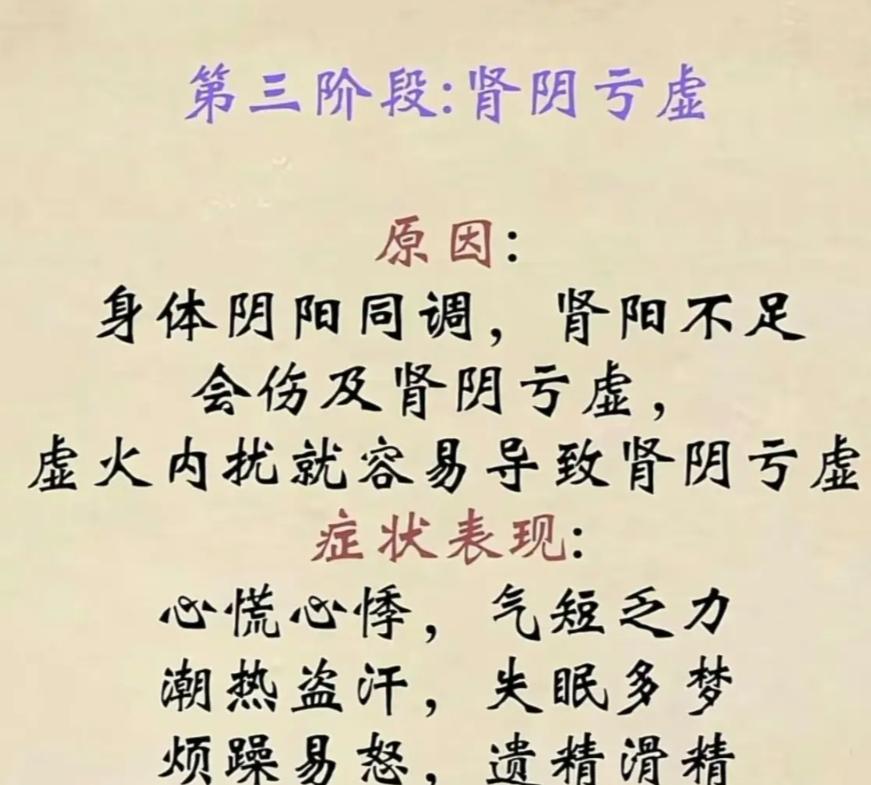 第三阶段:肾阴亏虚
原因:
身体阴阳同调，肾阳不足
会伤及肾阴亏虚，
虚火内扰就容易导致肾阴亏虚
症状表现:
心慌心悸，气短乏力
潮热盗汗，失眠多梦
烦躁易怒，遗精滑精